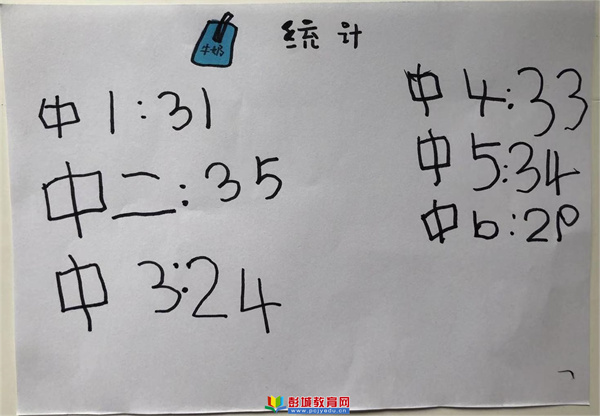 牛奶
统计
中1:31
中二:35
中3:24
中4:33
中5:34
中6:29
彭城教育网
www.pcjyedu.cn